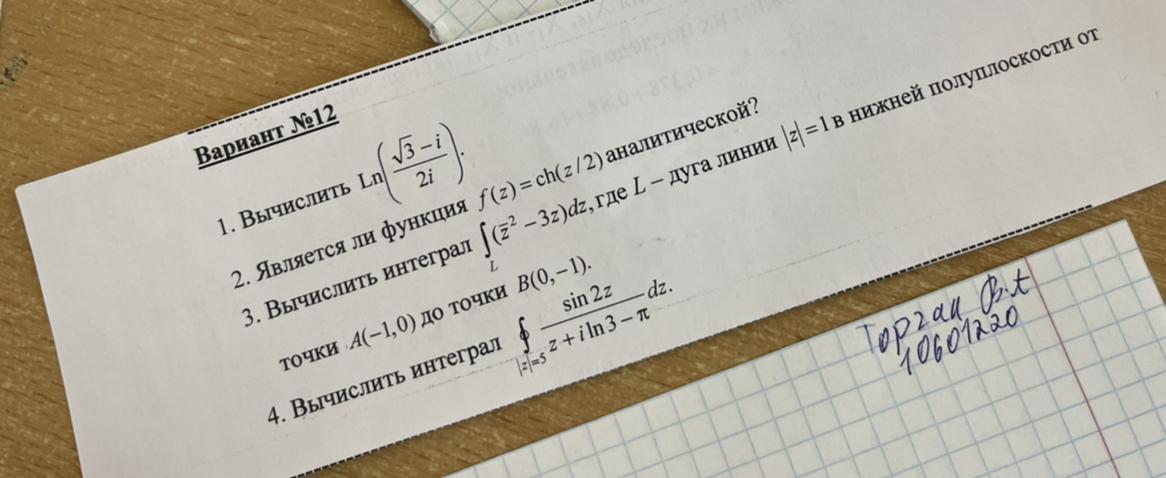 Вариант №12
1. Вычислить Ln((√3 − i)/(2i)).
2. Является ли функция f(z) = ch(z/2) аналитической?
3. Вычислить интеграл ∫_L (z̄² − 3z)dz, где L – дуга линии |z| = 1 в нижней полуплоскости от
точки A(−1,0) до точки B(0,−1).
4. Вычислить интеграл ∮_{|z|=5} sin 2z/(z + i ln 3 − π) dz.
10601220